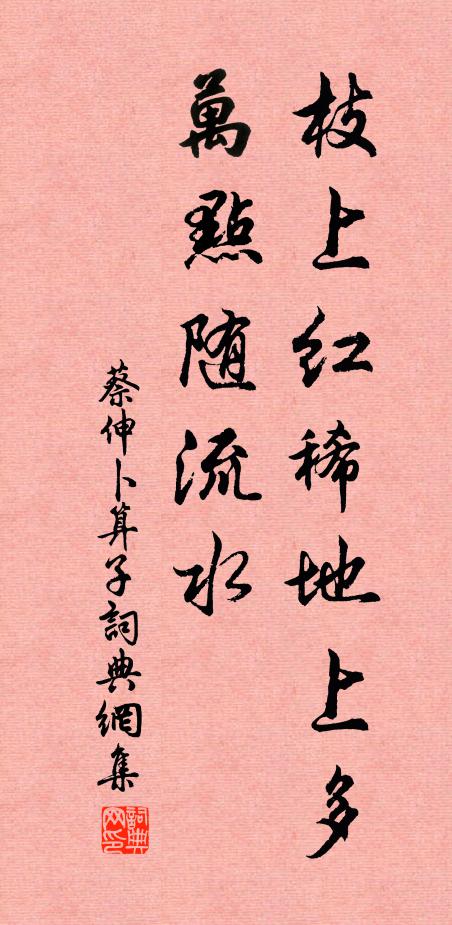 枝上红稀地上多
萬點随流水
蔡伸卜算子詞典網集
詞典网印